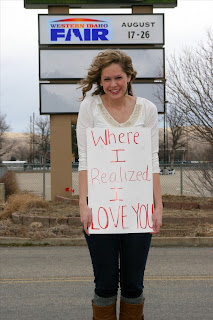 WESTERN IDAHO
FAIR
AUGUST
17-26
Where
I
Realized
I
LOVE YOU